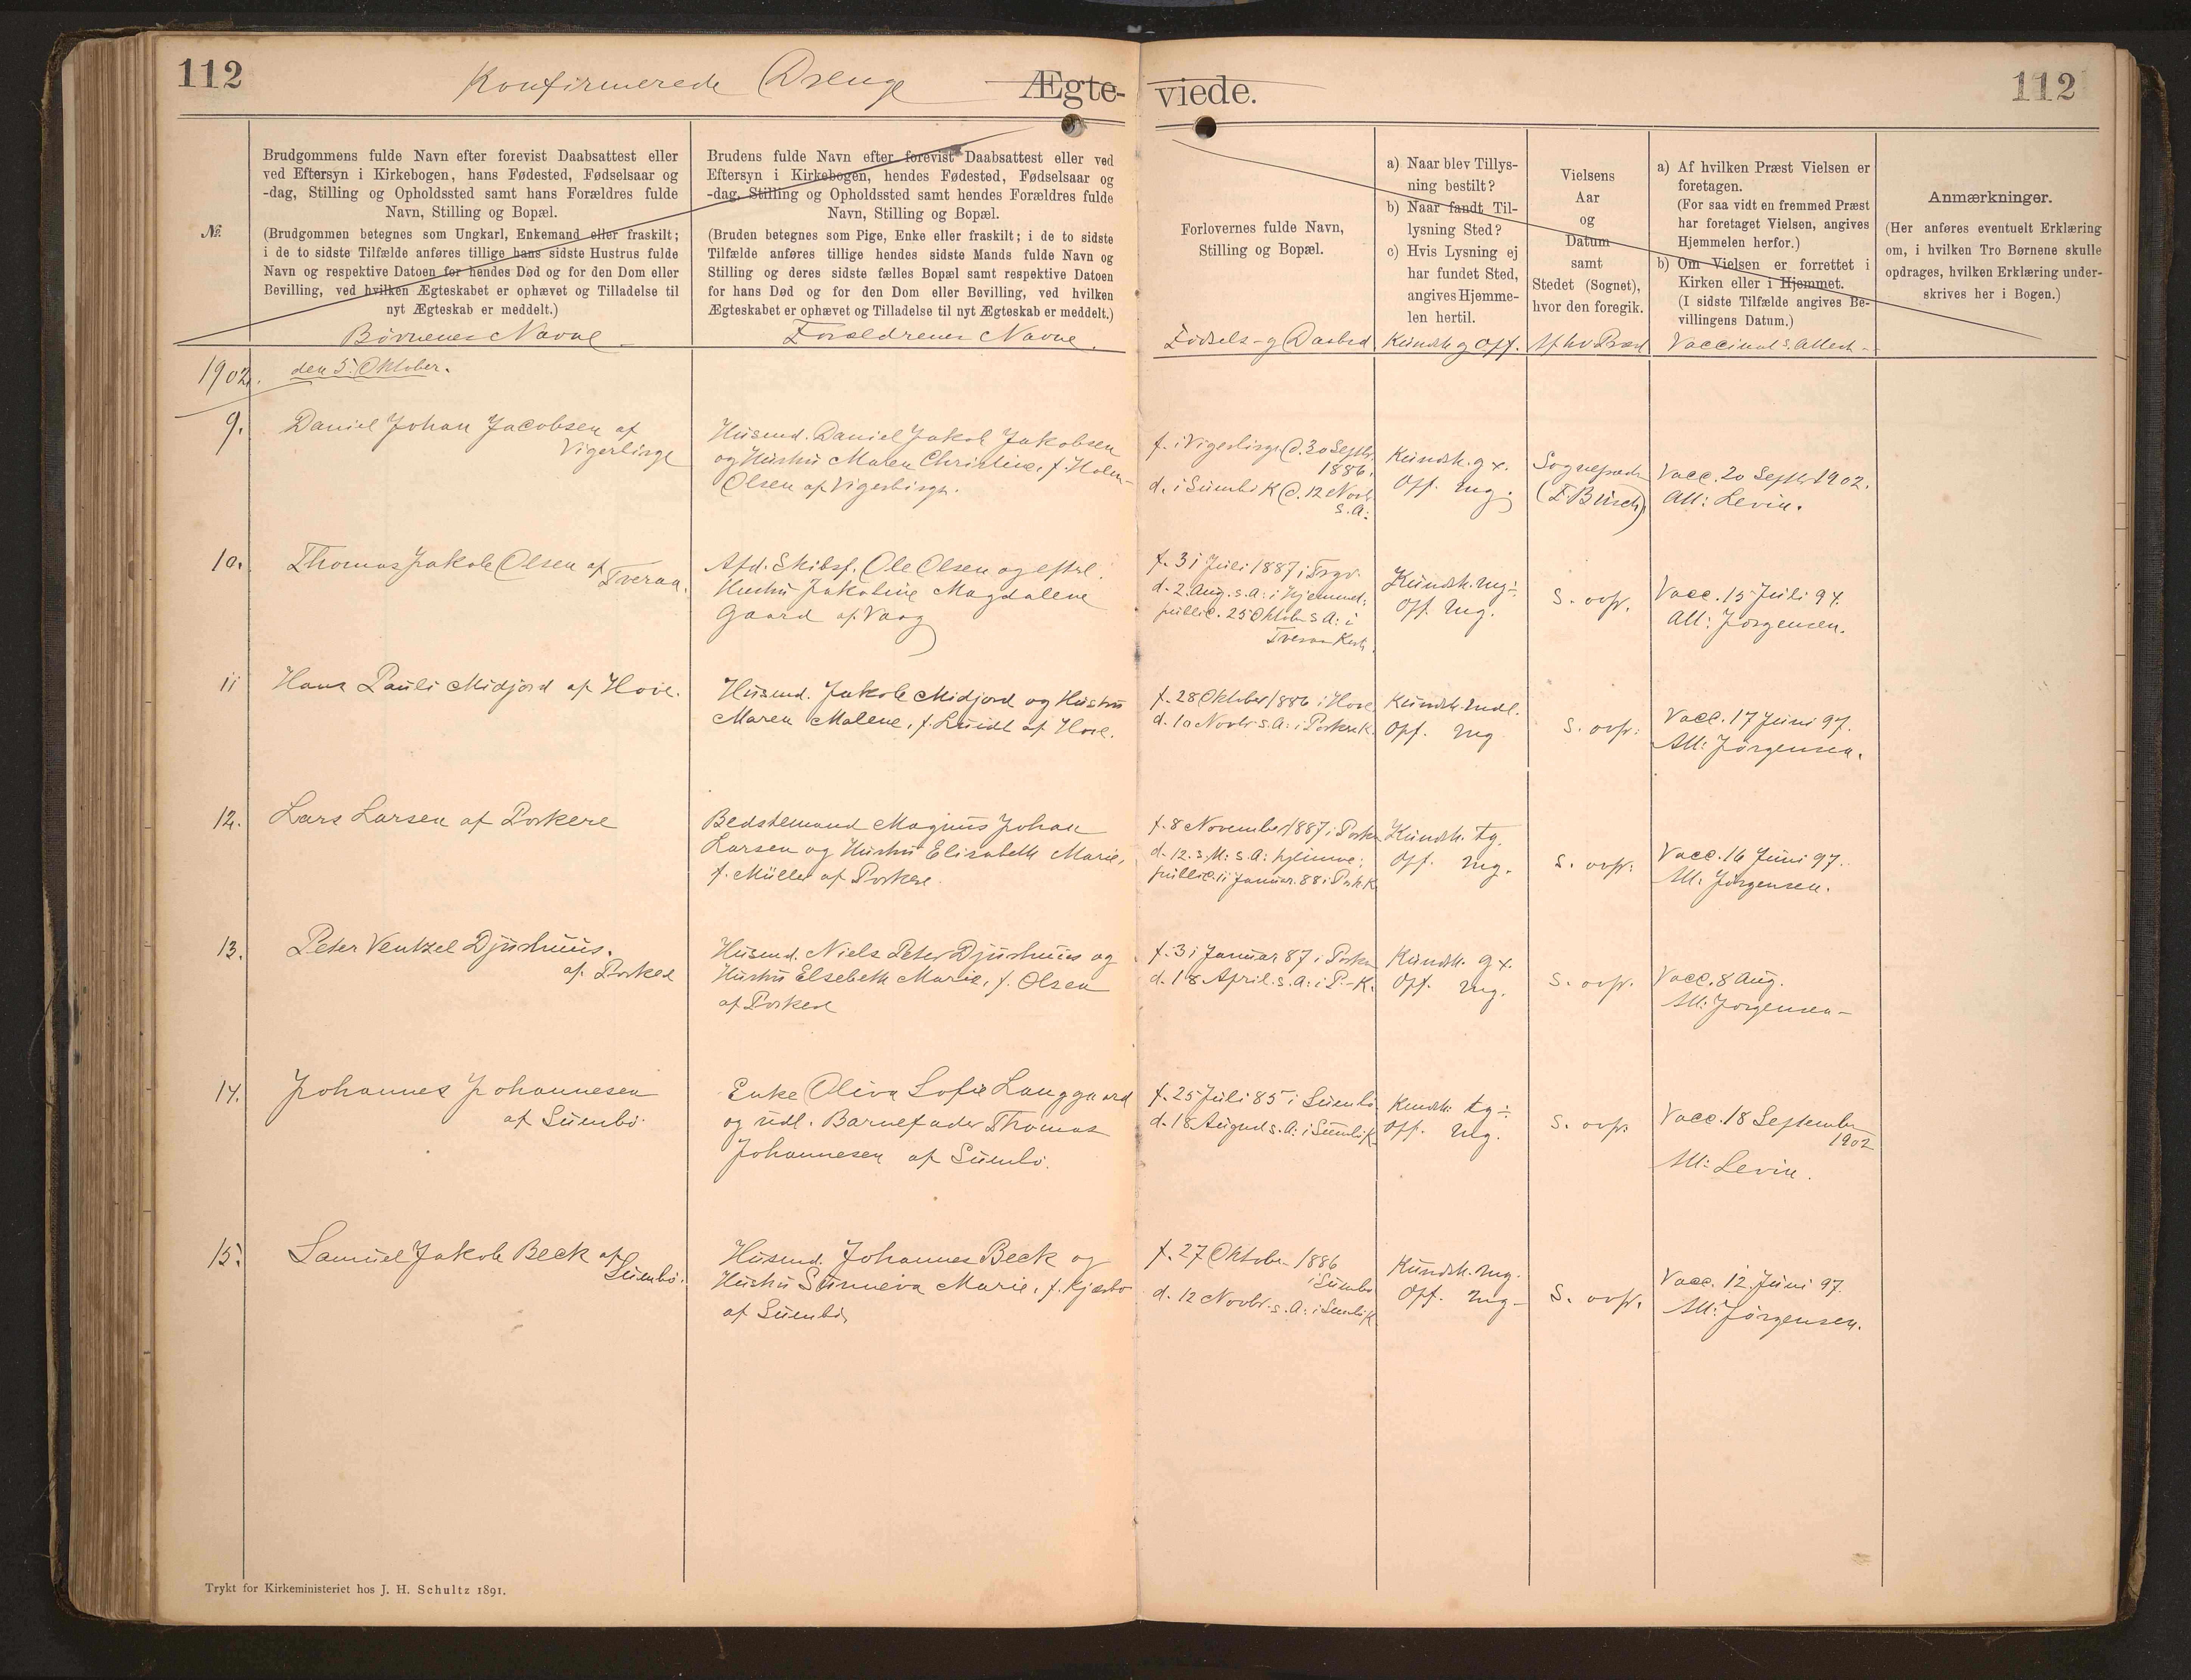 112
Konfirmerede Drenge
Ægte-
viede.
112
№
Brudgommens fulde Navn efter forevist Daabsattest eller
ved Eftersyn i Kirkebogen, hans Fødested, Fødselsaar og
-dag, Stilling og Opholdssted samt hans Forældres fulde
Navn, Stilling og Bopæl.
(Brudgommen betegnes som Ungkarl, Enkemand eller fraskilt;
i de to sidste Tilfælde anføres tillige hans sidste Hustrus fulde
Navn og respektive Datoen for hendes Død og for den Dom eller
Bevilling, ved hvilken Ægteskabet er ophævet og Tilladelse til
nyt Ægteskab er meddelt.)
Børnenes Navne
Brudens fulde Navn efter forevist Daabsattest eller ved
Eftersyn i Kirkebogen, hendes Fødested, Fødselsaar og
-dag, Stilling og Opholdssted samt hendes Forældres fulde
Navn, Stilling og Bopæl.
(Bruden betegnes som Pige, Enke eller fraskilt; i de to sidste
Tilfælde anføres tillige hendes sidste Mands fulde Navn og
Stilling og deres sidste fælles Bopæl samt respektive Datoen
for hans Død og for den Dom eller Bevilling, ved hvilken
Ægteskabet er ophævet og Tilladelse til nyt Ægteskab er meddelt.)
Forældrenes Navne.
Forlovernes fulde Navn,
Stilling og Bopæl.
Fødsels- g Daabsd
a) Naar blev Tillys-
ning bestilt?
b) Naar fandt Til-
lysning Sted?
c) Hvis Lysning ej
har fundet Sted,
angives Hjemme-
len hertil.
Kundsk g Opf.
Vielsens
Aar
og
Datum
samt
Stedet (Sognet),
hvor den foregik.
Af hv. Præst
a) Af hvilken Præst Vielsen er
foretagen.
(For saa vidt en fremmed Præst
har foretaget Vielsen, angives
Hjemmelen herfor.)
b) Om Vielsen er forrettet i
Kirken eller i Hjemmet.
(I sidste Tilfælde angives Be-
villingens Datum.)
Vaccinats. Attest -
Anmærkninger.
(Her anføres eventuelt Erklæring
om, i hvilken Tro Børnene skulle
opdrages, hvilken Erklæring under-
skrives her i Bogen.)
1902. den 5. Oktober.
9.
Daniel Johan Jacobsen af
Vigerbirge
Husmd. Daniel Jakob Jakobsen
og Hustru Maren Christine, f. Holm-
Olsen af Vigerbirge.
f. i Vigerbirge d. 30 Septbr.
1886.
d. i Sumbø K d. 12 Novb.
s. A:
Kundsk. g x.
Opf. mg.
Sognepræst
(F. Busch)
Vacc. 20 Septbr 1902.
Att: Levin.
10.
Thomas Jakob Olsen af
Tveraa.
Afd. Skibsf. Ole Olsen og eftrl.
Hustru Jakobine Magdalene
Gaard af Vaag
f. 31 Juli 1887 i
d. 2. Aug. s. A: i Hjemmet;
public. 25 Oktobr s A: i
Tveraa Kirk.
Kundsk. mg÷
Opf. mg.
s. ovfr.
Vacc. 15 Juli 94.
Att: Jørgensen.
11
Hans Pauli Midjord af Hove.
Husmd. Jakob Midjord og Hustru
Maren Malene, f. Lundt af Hove.
f. 28 Oktober 1886 i Hove
d. 10 Novbr s. A: i Porkere K.
Kundsk. mdl.
Opf. mg
s. ovfr:
Vacc. 17 Juni 97.
Att: Jørgensen.
12.
Lars Larsen af Porkere
Bedstemand Magnus Johan
Larsen og Hustru Elisabeth Marie,
f. Müller af Porkere.
f. 8 November 1887 i Pork
d. 12. s. M: s. A: hjemme;
public. 11 Januar. 88 i Pork K
Kundsk. tg.
Opf. mg.
s. ovfr:
Vacc. 16 Juni 97.
Att. Jørgensen.
13.
Peter Ventzel Djurhuus.
af Porkere
Husmd. Niels Peter Djurhuus og
Hustru Elsebeth Marie, f. Olsen
af Porkere
f. 31 Januar 87 i Porke
d. 18 April. s. A: i P.-K.
Kundsk. g x.
Opf. mg.
s. ovfr.
Vacc. 8 Aug.
Att: Jørgensen-
14.
Johannes Johannesen
af Sumbø.
Enke Oliva Sofie Langgaard
og udl. Barnefader Thomas
Johannesen af Sumbø.
f. 25 Juli 85 i Sumbø
d. 18 August s. A: i Sumbø K
Kundsk. tg÷
Opf. mg.
s. ovfr:
Vacc. 18 September
1902
Att: Levin.
15.
Samuel Jakob Beck af
Sumbø.
Husmd. Johannes Beck og
Hustru Sunneva Marie, f. Kjærbo
af Sumbø,
f. 27 Oktober 1886
i Sumbø
d. 12 Novbr. s. A: i Sumbø K
Kundsk. mg.
Opf. mg-
s. ovfr.
Vacc. 12 Juni 97.
Att: Jørgensen.
Trykt for Kirkeministeriet hos J. H. Schultz 1891.